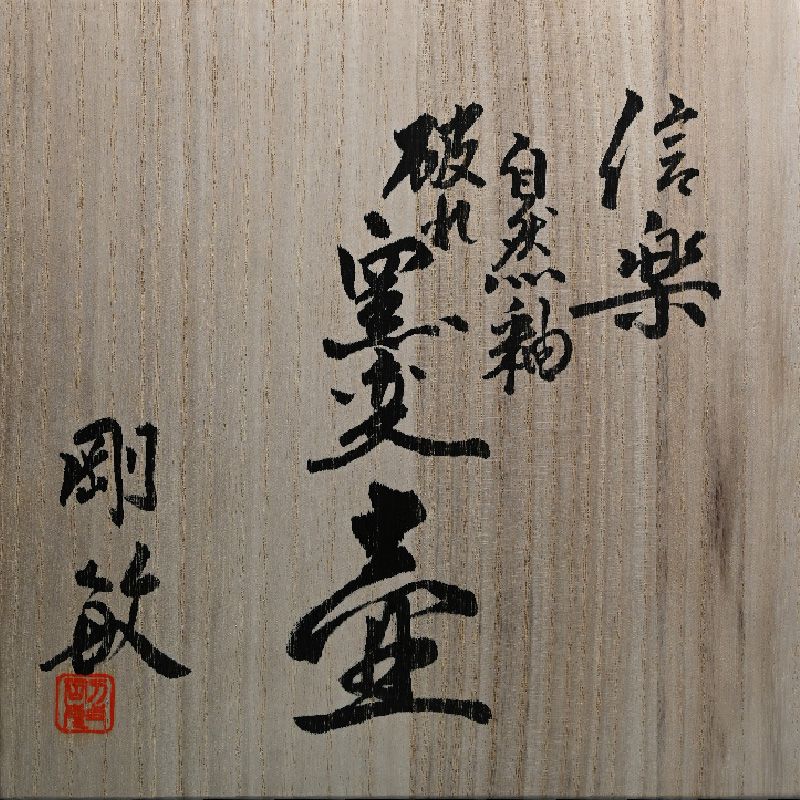 信楽
自然釉
破れ
窯変
壷
剛敏